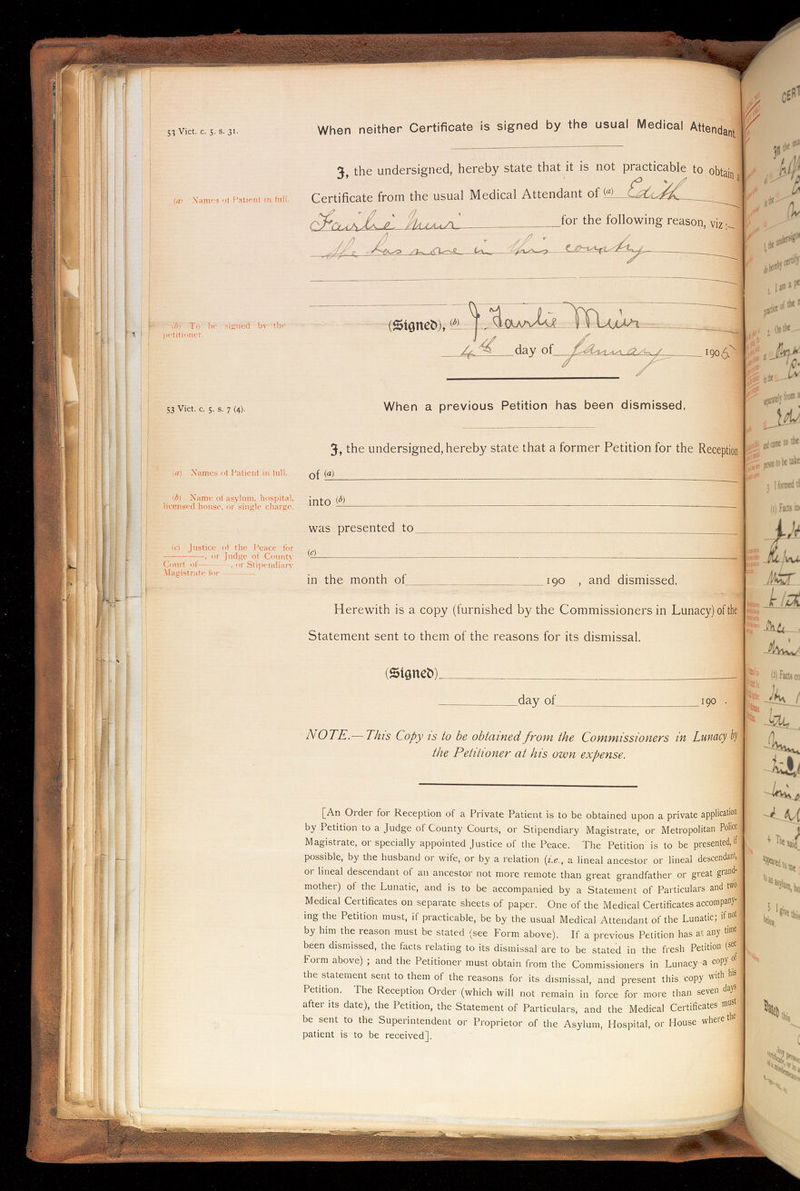 53 Vict. c. 5. s. 31.
When neither Certificate is signed by the usual Medical Attendant
I, the undersigned, hereby state that it is not practicable to obtain a
(a) Names of Patient in full.
Certificate from the usual Medical Attendant of (a) Edith
Fairlie Muir for the following reason, viz :—
She has none in this country
(b) To be signed by the
petitioner.
(Signed), (b) J. Fairlie Muir
4th day of January 1905
53 Vict. c. 5. s. 7 (4).
When a previous Petition has been dismissed.
I, the undersigned, hereby state that a former Petition for the Reception
(a) Names of Patient in full.
of (a)
(b) Name of asylum, hospital,
licensed house, or single charge.
into (b)
was presented to
(c) Justice of the Peace for
———, or Judge of County
Court of———, or Stipendiary
Magistrate for
(c)
in the month of 190 , and dismissed.
Herewith is a copy (furnished by the Commissioners in Lunacy) of the
Statement sent to them of the reasons for its dismissal.
(Signed)
day of 190 .
NOTE.—This Copy is to be obtained from the Commissioners in Lunacy by
the Petitioner at his own expense.
[An Order for Reception of a Private Patient is to be obtained upon a private application
by Petition to a Judge of County Courts, or Stipendiary Magistrate, or Metropolitan Police
Magistrate, or specially appointed Justice of the Peace. The Petition is to be presented, if
possible, by the husband or wife, or by a relation (i.e., a lineal ancestor or lineal descendant,
or lineal descendant of an ancestor not more remote than great grandfather or great grand-
mother) of the Lunatic, and is to be accompanied by a Statement of Particulars and two
Medical Certificates on separate sheets of paper. One of the Medical Certificates accompany-
ing the Petition must, if practicable, be by the usual Medical Attendant of the Lunatic; if not
by him the reason must be stated (see Form above). If a previous Petition has at any time
been dismissed, the facts relating to its dismissal are to be stated in the fresh Petition (see
Form above) ; and the Petitioner must obtain from the Commissioners in Lunacy a copy of
the statement sent to them of the reasons for its dismissal, and present this copy with his
Petition. The Reception Order (which will not remain in force for more than seven days
after its date), the Petition, the Statement of Particulars, and the Medical Certificates must
be sent to the Superintendent or Proprietor of the Asylum, Hospital, or House where the
patient is to be received].
CERT
In the
in the
I, the undersigned
do hereby certify
1. I am a
practice of the
2. On the
in the
separately from
and came to the
person to be take
3. I formed
(1) Facts
(2) Facts
4. The said
appeared to me
to an asylum,
5. I give this
below.
Dated this